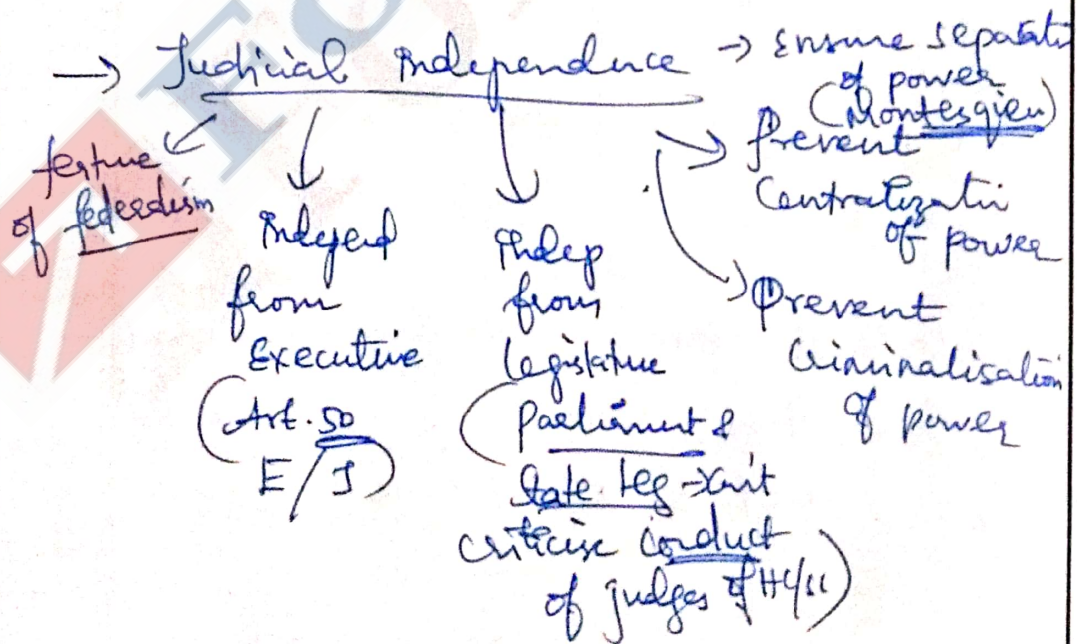 → Judicial Independence
→ Ensure separati
of power
(Montesgieu)
fertue
of federalism
Independ
from
Executive
(Art. 50
E/J)
Indep
from
Legislature
(Parliament &
State Leg → can't
criticise conduct
of judges of HC/SC)
Prevent
Centralization
of power
Prevent
Criminalisation
of power